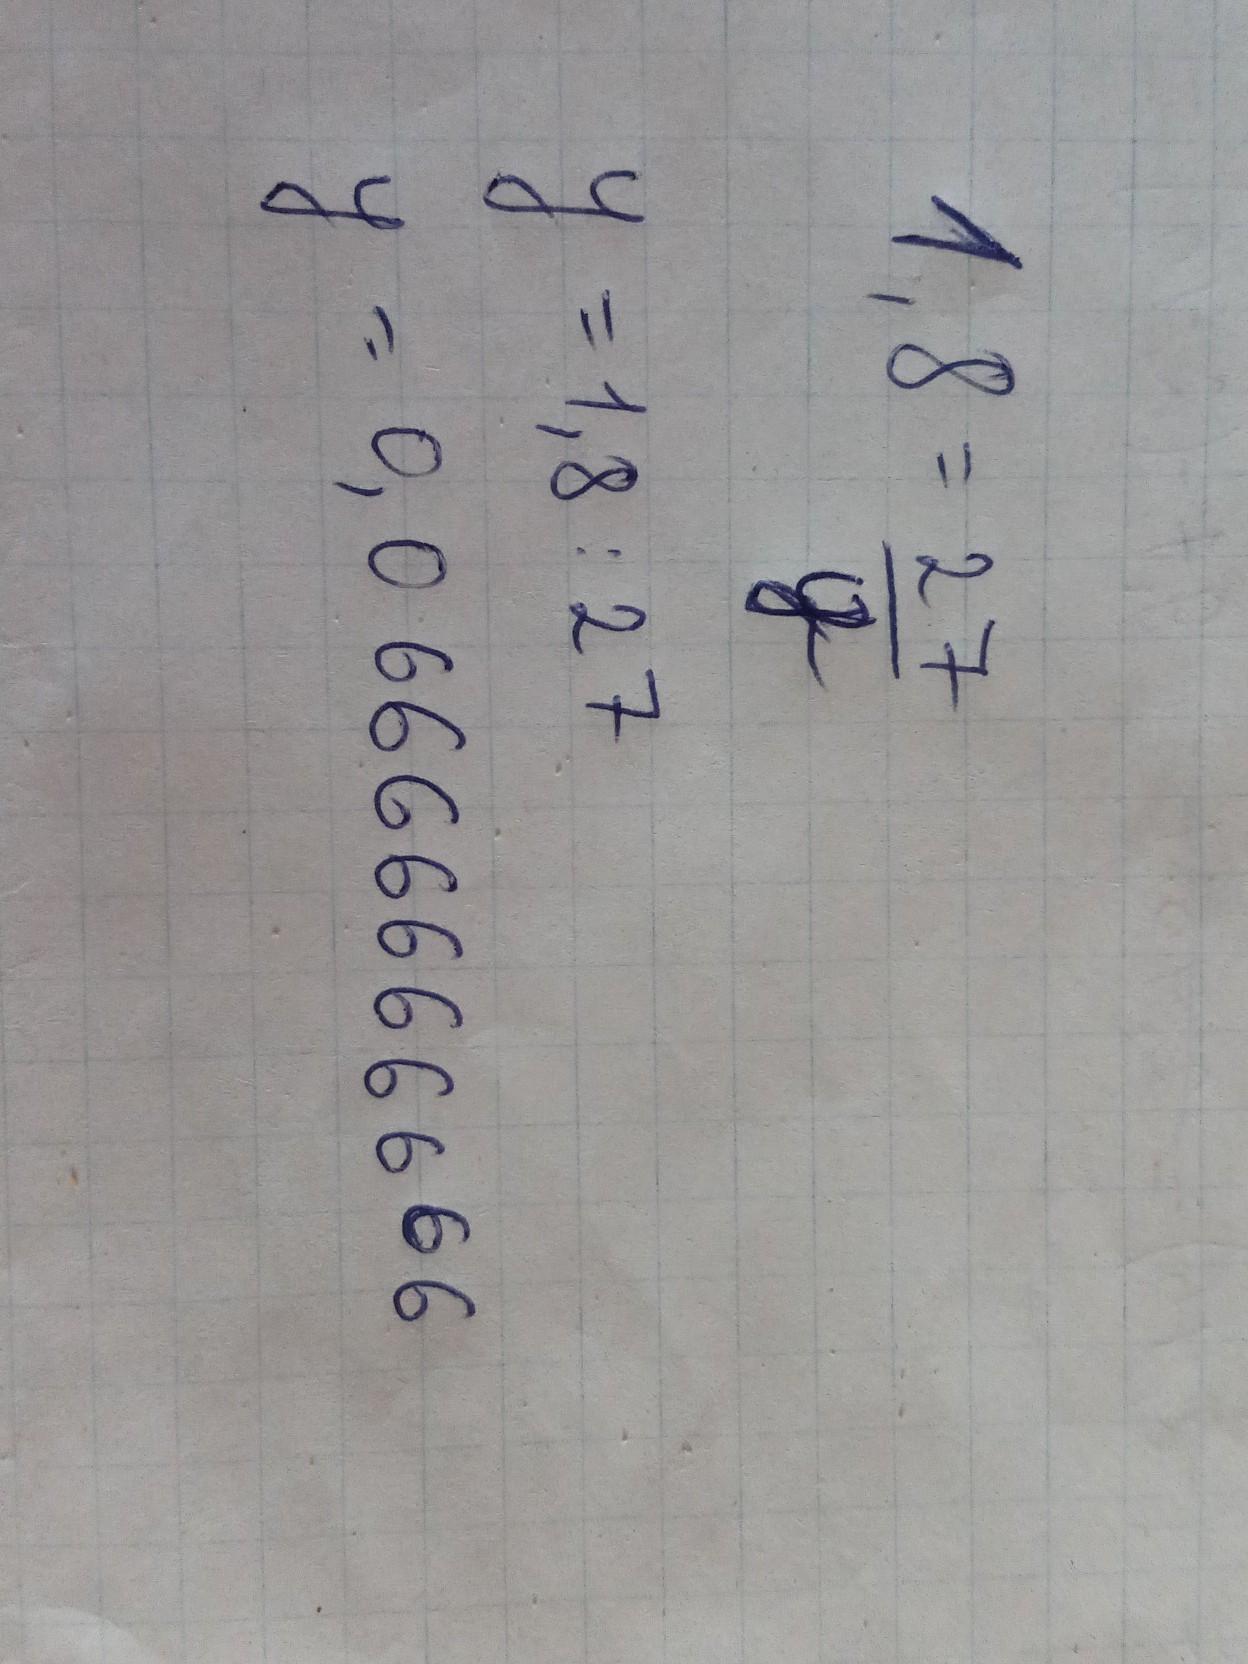 1,8 = 27
y
y = 1,8 : 27
y = 0,06666666666